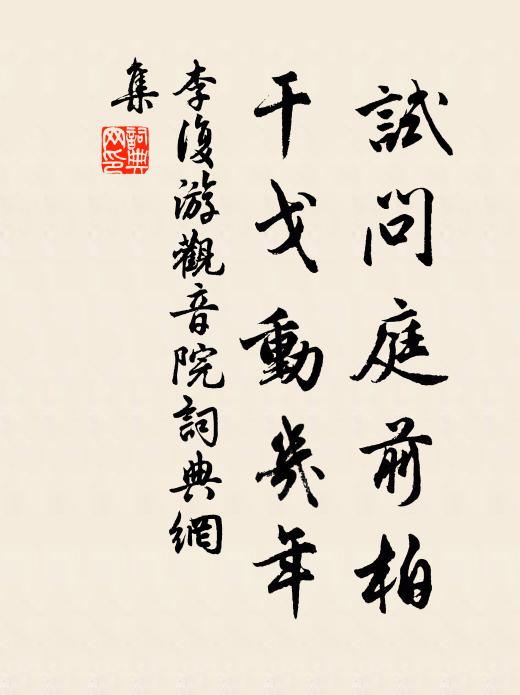 試問庭前柏
干戈動幾年
李復游觀音院詞典網
集
詞典網印